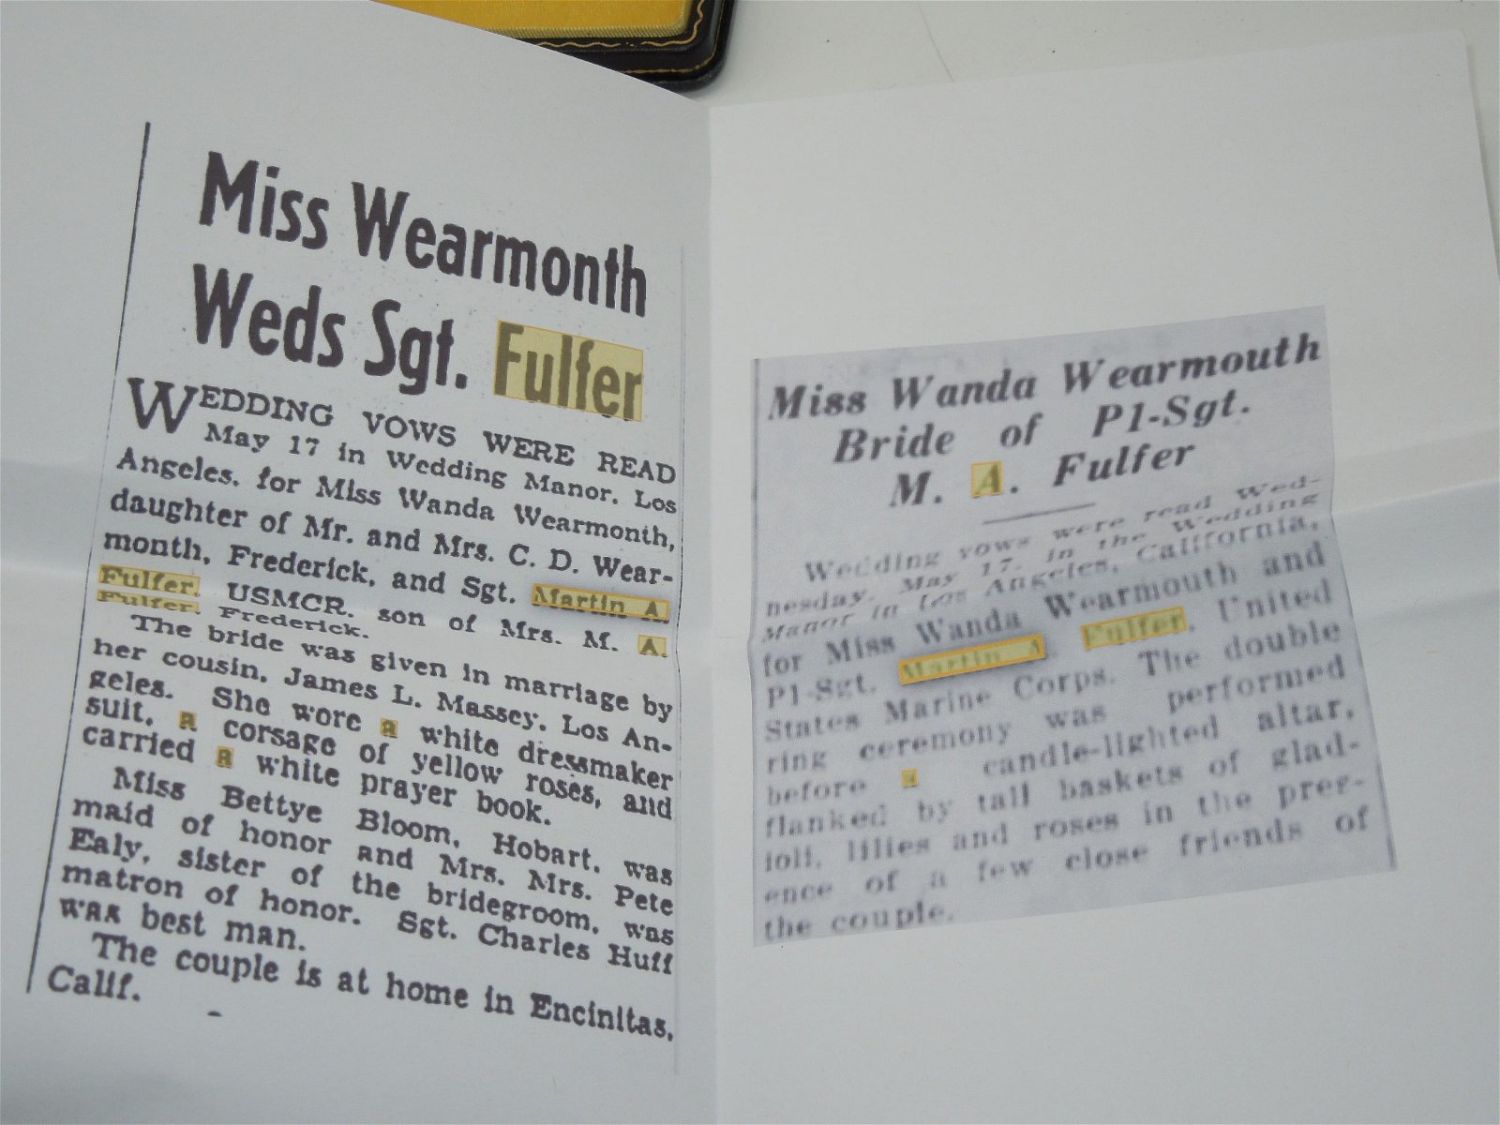 Miss Wearmonth
Weds Sgt. Fulfer
WEDDING VOWS WERE READ
May 17 in Wedding Manor, Los
Angeles, for Miss Wanda Wearmonth,
daughter of Mr. and Mrs. C. D. Wear-
month, Frederick, and Sgt. Martin A.
Fulfer, USMCR, son of Mrs. M. A.
Fulfer, Frederick.
The bride was given in marriage by
her cousin, James L. Massey, Los An-
geles. She wore a white dressmaker
suit, a corsage of yellow roses, and
carried a white prayer book.
Miss Bettye Bloom, Hobart, was
maid of honor and Mrs. Mrs. Pete
Ealy, sister of the bridegroom, was
matron of honor. Sgt. Charles Huff
was best man.
The couple is at home in Encinitas,
Calif.
Miss Wanda Wearmouth
Bride of P1-Sgt.
M. A. Fulfer
Wedding vows were read Wed-
nesday, May 17, in the Wedding
Manor in Los Angeles, California,
for Miss Wanda Wearmouth and
P1-Sgt. Martin A Fulfer, United
States Marine Corps. The double
ring ceremony was performed
before a candle-lighted altar,
flanked by tall baskets of glad-
ioli, lilies and roses in the pres-
ence of a few close friends of
the couple.